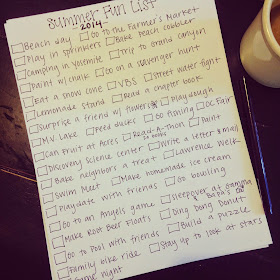 Summer Fun List
2014
Beach day Go to the Farmer's Market
Play in sprinklers Bake peach cobbler
Camping in Yosemite Trip to grand canyon
Paint w/ chalk Go on a scavenger hunt
Eat a snow cone VBS Street water fight
Lemonade Stand Read a chapter book
Surprise a friend w/ flowers Playdough
M.V. Lake Feed ducks Go fishing OC Fair
Can Fruit at Acres Read-A-Thon Paint
20 books
Discovery science center Write a letter & mail
Bake neighbors a treat Lawrence Welk
Swim Meet Make homemade ice cream
Playdate with friends Go bowling
Go to an Angels game Sleepover at Gramma
& Papa's
Make Root Beer Floats Ding Dong Donut
Go to Pool with friends Build a puzzle
Family bike ride Stay up to look at stars
Game night